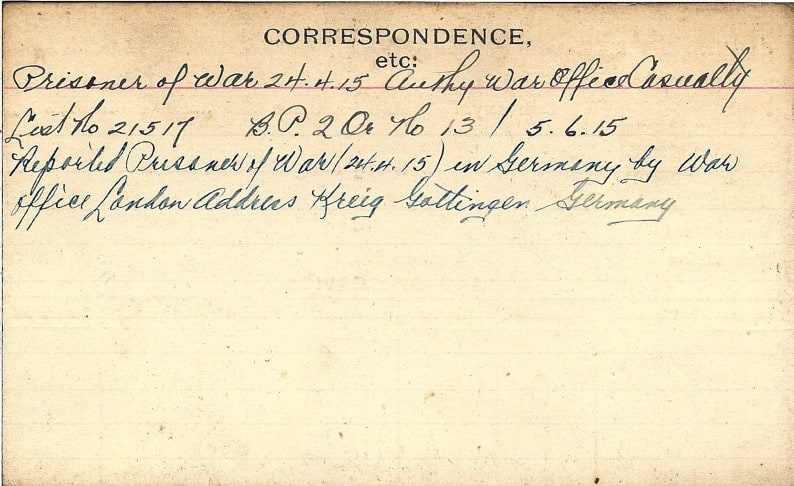 CORRESPONDENCE,
etc:
Prisoner of War 24.4.15 Authy War Office Casualty
List No 21517 B.P. 2 Or No 13 / 5.6.15
Reported Prisoner of War (24.4.15) in Germany by War
Office London Address Kreig Gottingen Germany